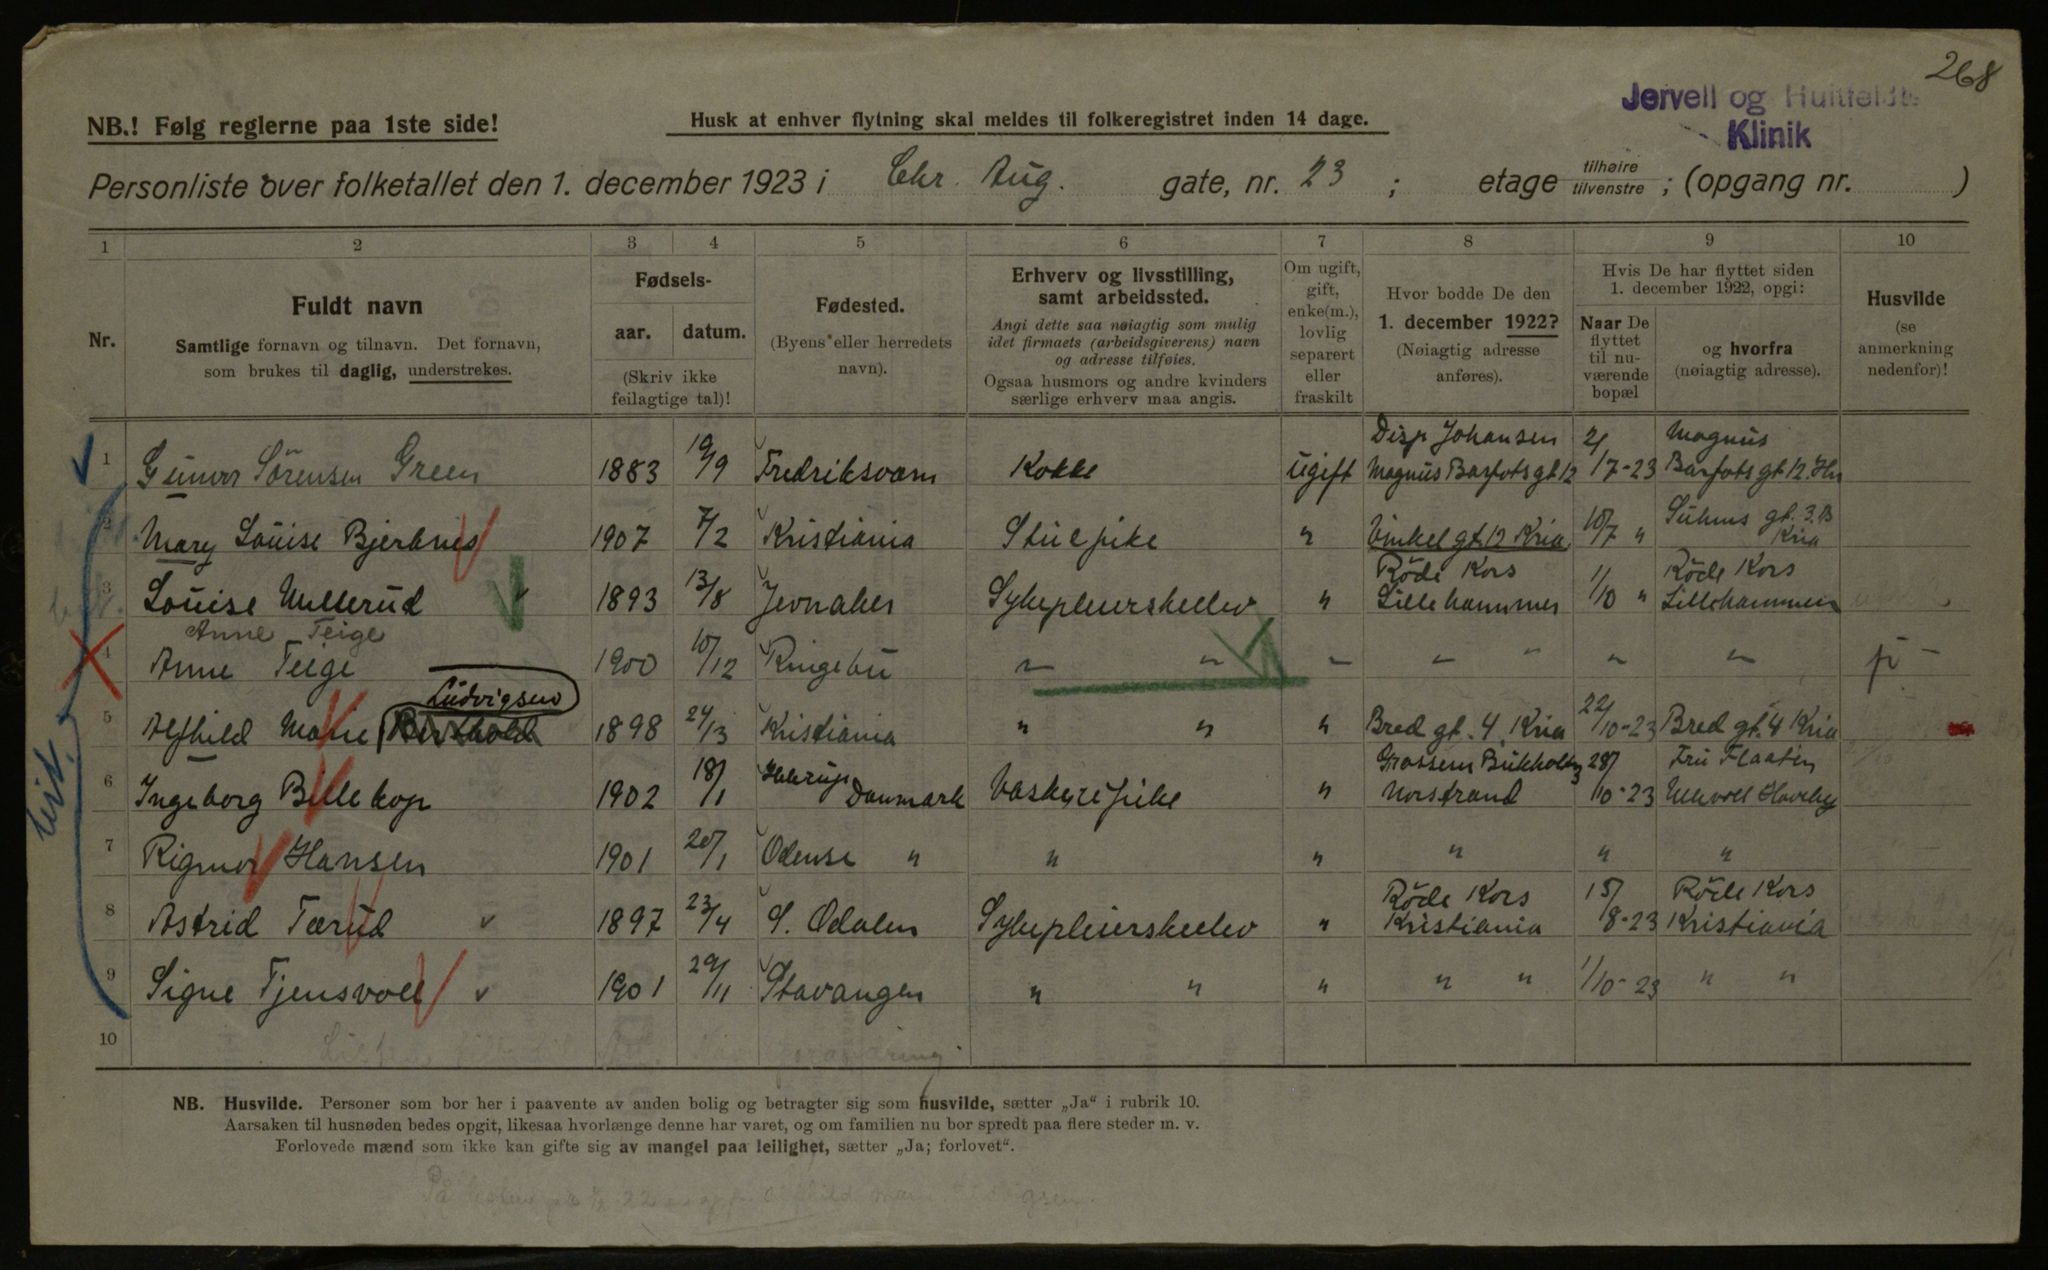 268
Jervell og Hultfeldts
Klinik
NB.! Følg reglerne paa 1ste side!
Husk at enhver flytning skal meldes til folkeregistret inden 14 dage.
Personliste over folketallet den 1. december 1923 i Chr. Aug. gate, nr. 23 ; etage tilhøire tilvenstre ; (opgang nr. )
1 2 3 4 5 6 7 8 9 10
Nr.
Fuldt navn
Samtlige fornavn og tilnavn. Det fornavn,
som brukes til daglig, understrekes.
Fødsels-
aar. datum.
(Skriv ikke
feilagtige tal)!
Fødested.
(Byens eller herredets
navn).
Erhverv og livsstilling,
samt arbeidssted.
Angi dette saa nøiagtig som mulig
idet firmaets (arbeidsgiverens) navn
og adresse tilføies.
Ogsaa husmors og andre kvinders
særlige erhverv maa angis.
Om ugift,
gift,
enke(m.),
lovlig
separert
eller
fraskilt
Hvor bodde De den
1. december 1922?
(Nøiagtig adresse
anføres).
Hvis De har flyttet siden
1. december 1922, opgi:
Naar De
flyttet
til nu-
værende
bopæl
og hvorfra
(nøiagtig adresse).
Husvilde
(se
anmerkning
nedenfor)!
1 Gunvor Sörensen Green 1883 19/9 Fredriksværn Kokke ugift Disp Johansen Magnus Barfots gt 12 2/7-23 Magnus Barfots gt. 12.
2 Mary Louise Bjerknes 1907 7/2 Kristiania Stuepike " Vinkel gt. 12 Kria 10/7 " Suhms gt. 3.B Kria
3 Louise Mellerud 1893 13/8 Jevnaker Sykepleierskeelev " Röde Kors Lillehammer 1/10 " Röde Kors Lillehammer
Anne Teige
4 Anne Teige 1900 10/12 Ringebu " " " " " " "
Ludvigsen
5 Alfhild Marie Berthold 1898 24/3 Kristiania " " " Bred gt. 4. Kria 22/10-23 Bred gt. 4 Kria
6 Ingeborg Billekop 1902 18/1 Danmark Vaskeripike " Grosserer Bukholtz Norstrand 28/10-23 Fru Flaaten Ullevold Haveby
7 Rigmor Hansen 1901 20/1 Odense " " " " " "
8 Astrid Tærud 1897 23/4 S. Odalen Sykepleierskeelev " Röde Kors Kristiania 15/8-23 Röde Kors Kristiania
9 Signe Tjensvoll 1901 29/11 Stavanger " " " " " 1/10-23 " "
10
NB. Husvilde. Personer som bor her i paavente av anden bolig og betragter sig som husvilde, sætter „Ja“ i rubrik 10.
Aarsaken til husnøden bedes opgit, likesaa hvorlænge denne har varet, og om familien nu bor spredt paa flere steder m. v.
Forlovede mænd som ikke kan gifte sig av mangel paa leilighet, sætter „Ja; forlovet“.